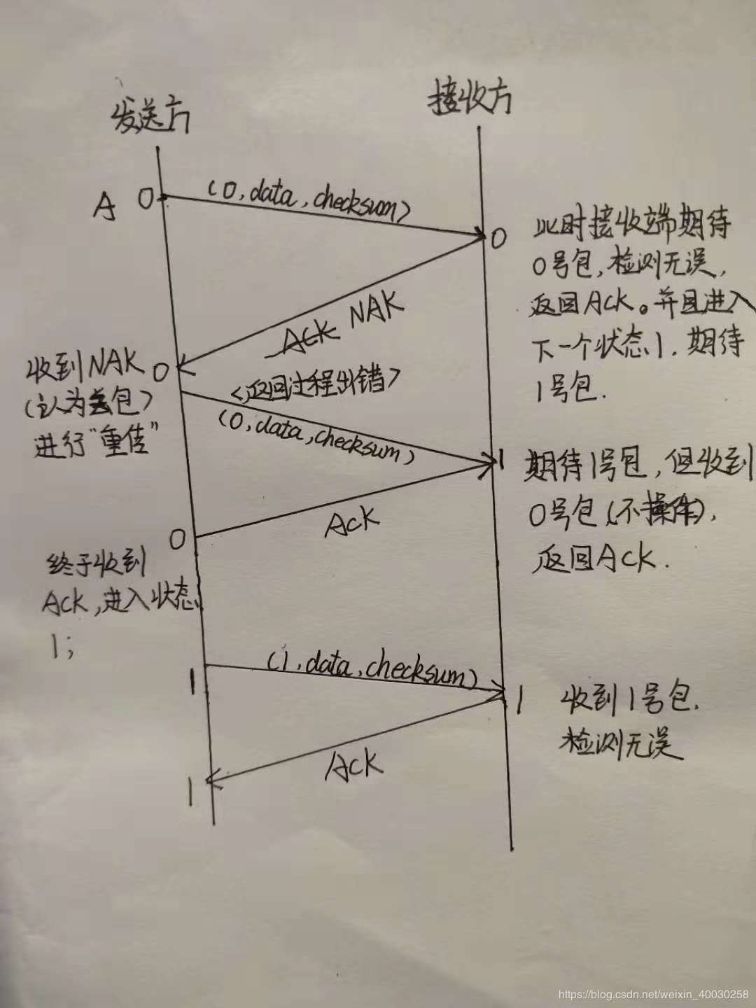 发送方
接收方
A 0
(0,data,checksum)
0
此时接收端期待
0号包,检测无误,
返回ACK。并且进入
下一个状态1.期待
1号包.
ACK NAK
收到NAK
(认为丢包)
进行"重传"
0
<返回过程出错>
(0,data,checksum)
1
期待1号包,但收到
0号包(不操作),
返回ACK.
ACK
0
终于收到
ACK,进入状态
1;
1
(1,data,checksum)
1
收到1号包.
检测无误
ACK
1
https://blog.csdn.net/weixin_40030258